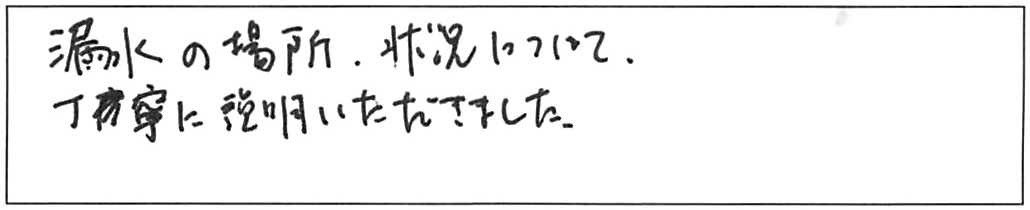 漏水の場所、状況について、
丁寧に説明いただきました。